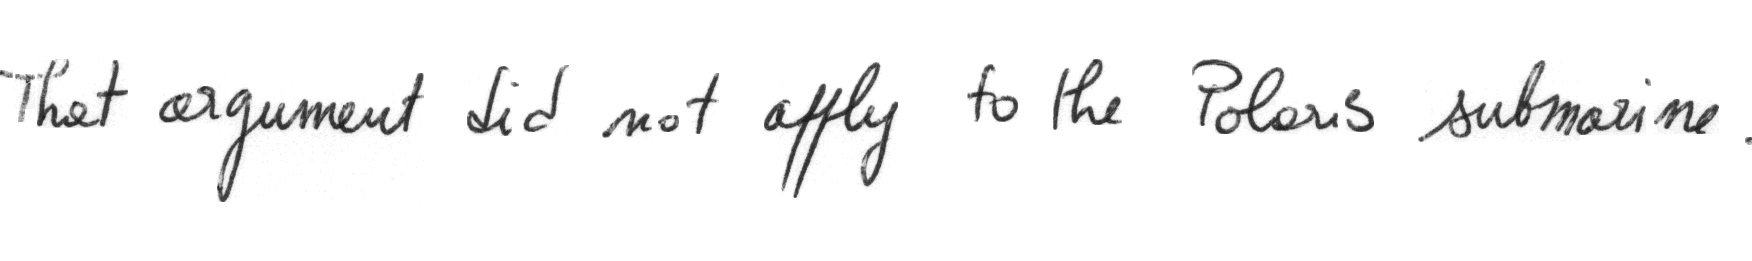 That argument did not apply to the Polaris submarine.